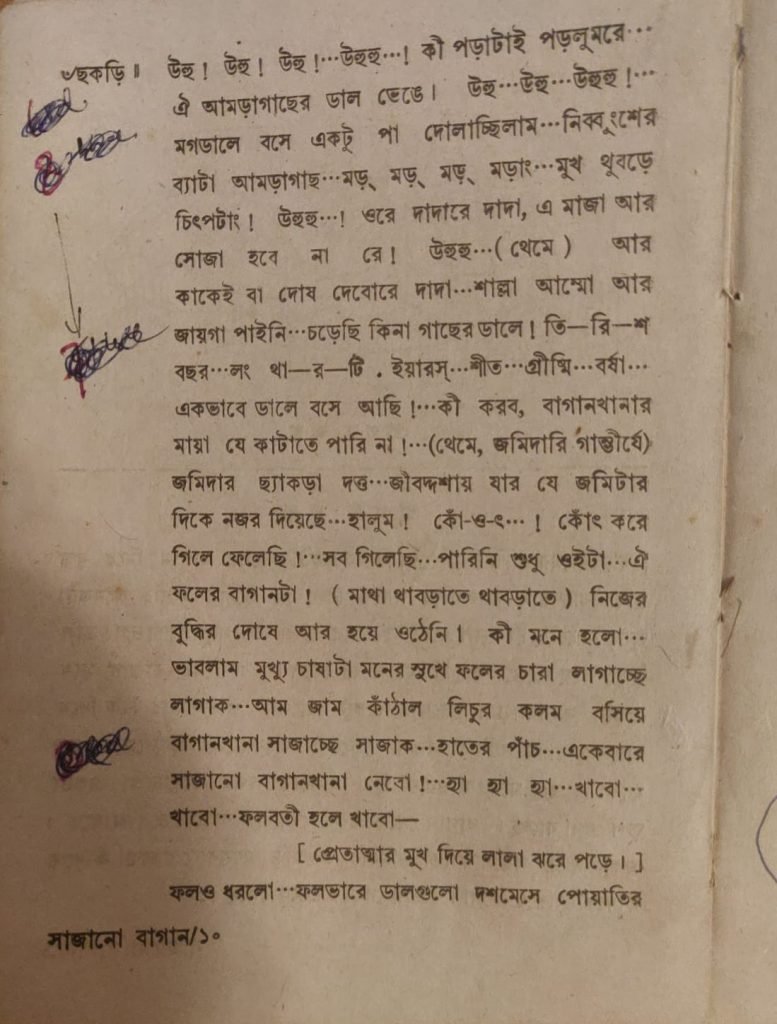 ৺ছকড়ি॥ উহু! উহু! উহু!···উহুহু···! কী পড়াটাই পড়লুমরে···
ঐ আমড়াগাছের ডাল ভেঙে। উহু···উহু···উহুহু!···
মগডালে বসে একটু পা দোলাচ্ছিলাম···নিব্বুংশের
ব্যাটা আমড়াগাছ···মড়্ মড়্ মড়্ মড়াং···মুখ থুবড়ে
চিৎপটাং! উহুহু···! ওরে দাদারে দাদা, এ মাজা আর
সোজা হবে না রে! উহুহু···( থেমে ) আর
কাকেই বা দোষ দেবোরে দাদা···শাল্লা আম্মো আর
জায়গা পাইনি···চড়েছি কিনা গাছের ডালে! তি—রি—শ
বছর···লং থা—র—টি . ইয়ারস্···শীত···গ্রীষ্মি···বর্ষা···
একভাবে ডালে বসে আছি!···কী করব, বাগানখানার
মায়া যে কাটাতে পারি না!···(থেমে, জমিদারি গাম্ভীর্যে)
জমিদার ছ্যাকড়া দত্ত···জীবদ্দশায় যার যে জমিটার
দিকে নজর দিয়েছে···হালুম! কোঁ-ও-ৎ···! কোঁৎ করে
গিলে ফেলেছি!···সব গিলেছি···পারিনি শুধু ওইটা···ঐ
ফলের বাগানটা! ( মাথা থাবড়াতে থাবড়াতে ) নিজের
বুদ্ধির দোষে আর হয়ে ওঠেনি। কী মনে হলো···
ভাবলাম মুখ্যু চাষাটা মনের সুখে ফলের চারা লাগাচ্ছে
লাগাক···আম জাম কাঁঠাল লিচুর কলম বসিয়ে
বাগানখানা সাজাচ্ছে সাজাক···হাতের পাঁচ···একেবারে
সাজানো বাগানখানা নেবো!···হ্যা হ্যা হ্যা···খাবো···
খাবো···ফলবতী হলে খাবো—
[ প্রেতাত্মার মুখ দিয়ে লালা ঝরে পড়ে। ]
ফলও ধরলো···ফলভারে ডালগুলো দশমেসে পোয়াতির
সাজানো বাগান/১০